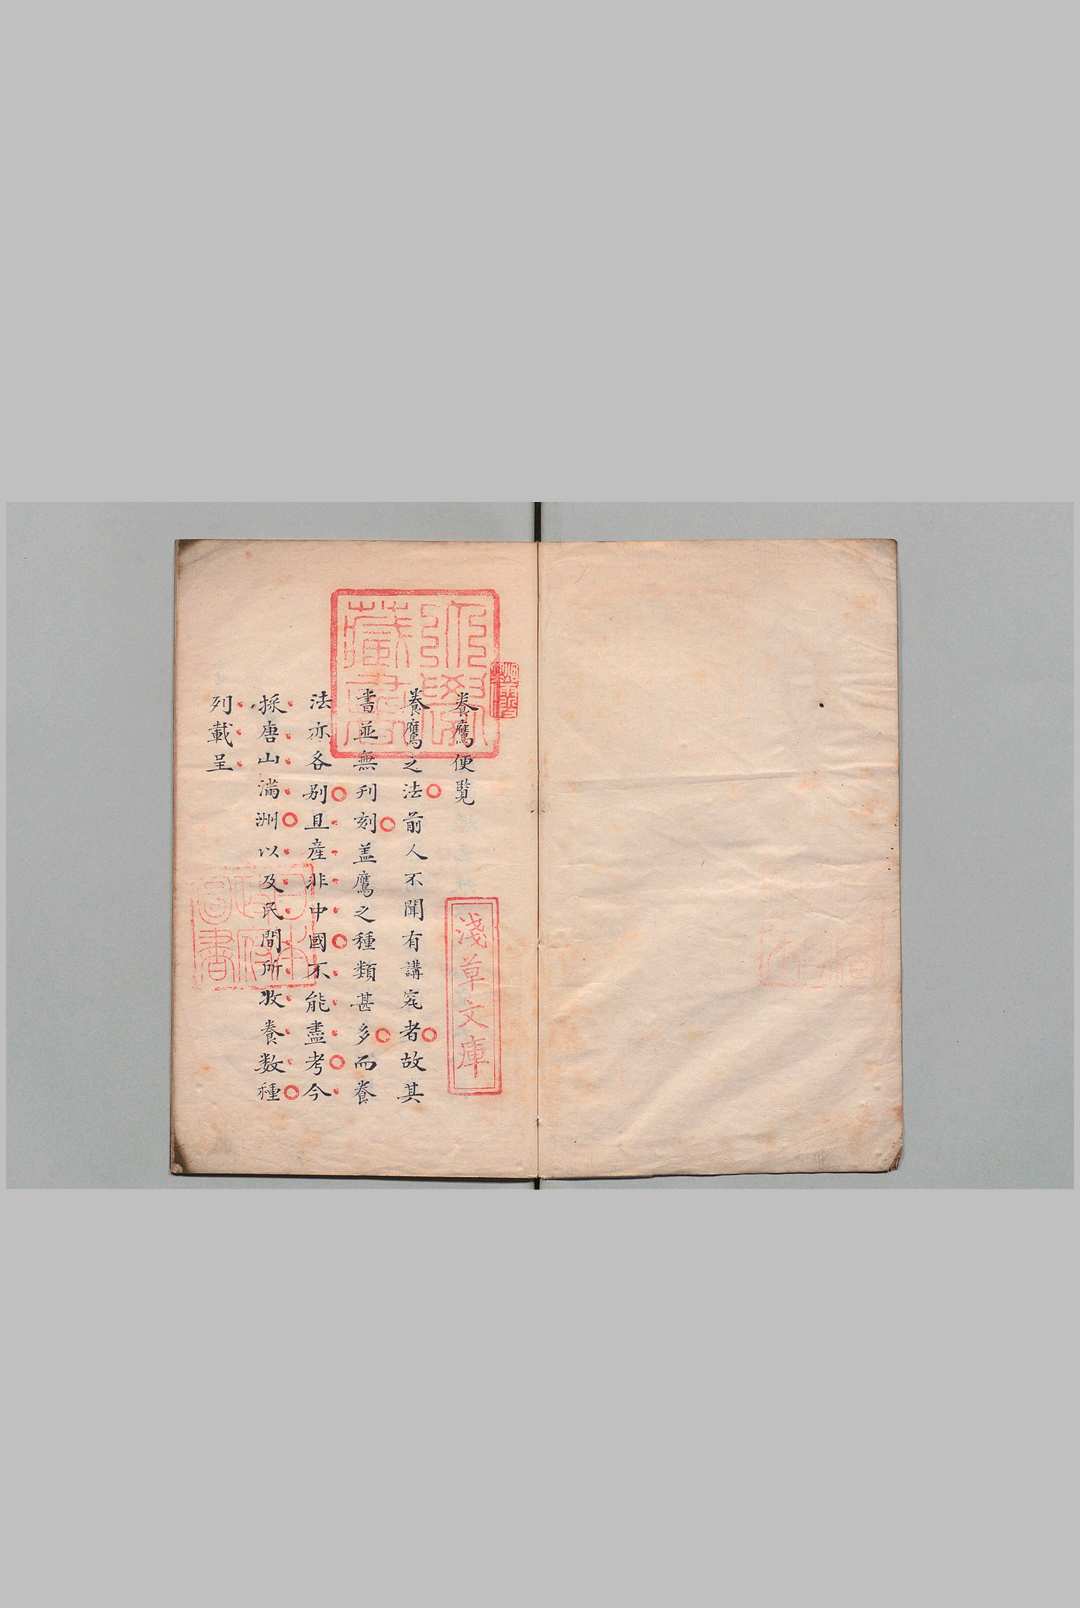 養鷹便覧
養鷹之法前人不聞有講究者故其
書並無刋刻盖鷹之種類甚多而養
法亦各别且產非中國不能盡考今
採唐山滿洲以及民間所收養數種
列載呈
淺草文庫
日本政府圖書